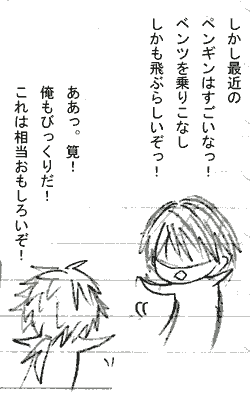 しかし最近の
ペンギンはすごいなっ！
ベンツを乗りこなし
しかも飛ぶらしいぞっ！
ああっ。筧！
俺もびっくりだ！
これは相当おもしろいぞ！